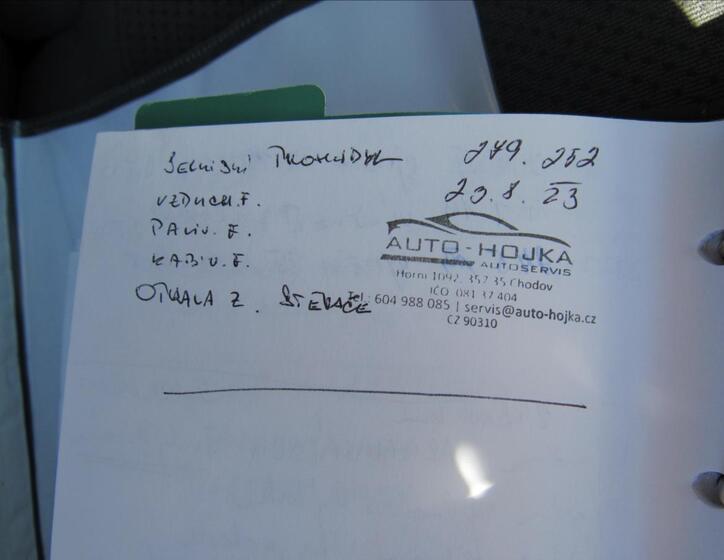 SERVISNÍ PROHLÍDKA 279.252
VZDUCH.F. 29.8.23
PALIV.F.
KABIV.F.
OTKALA Z. STĚRAČE
AUTO-HOJKA
AUTOSERVIS
Horní 1092, 357 35 Chodov
IČO 081 37 404
Tel: 604 988 085 | servis@auto-hojka.cz
CZ 90310